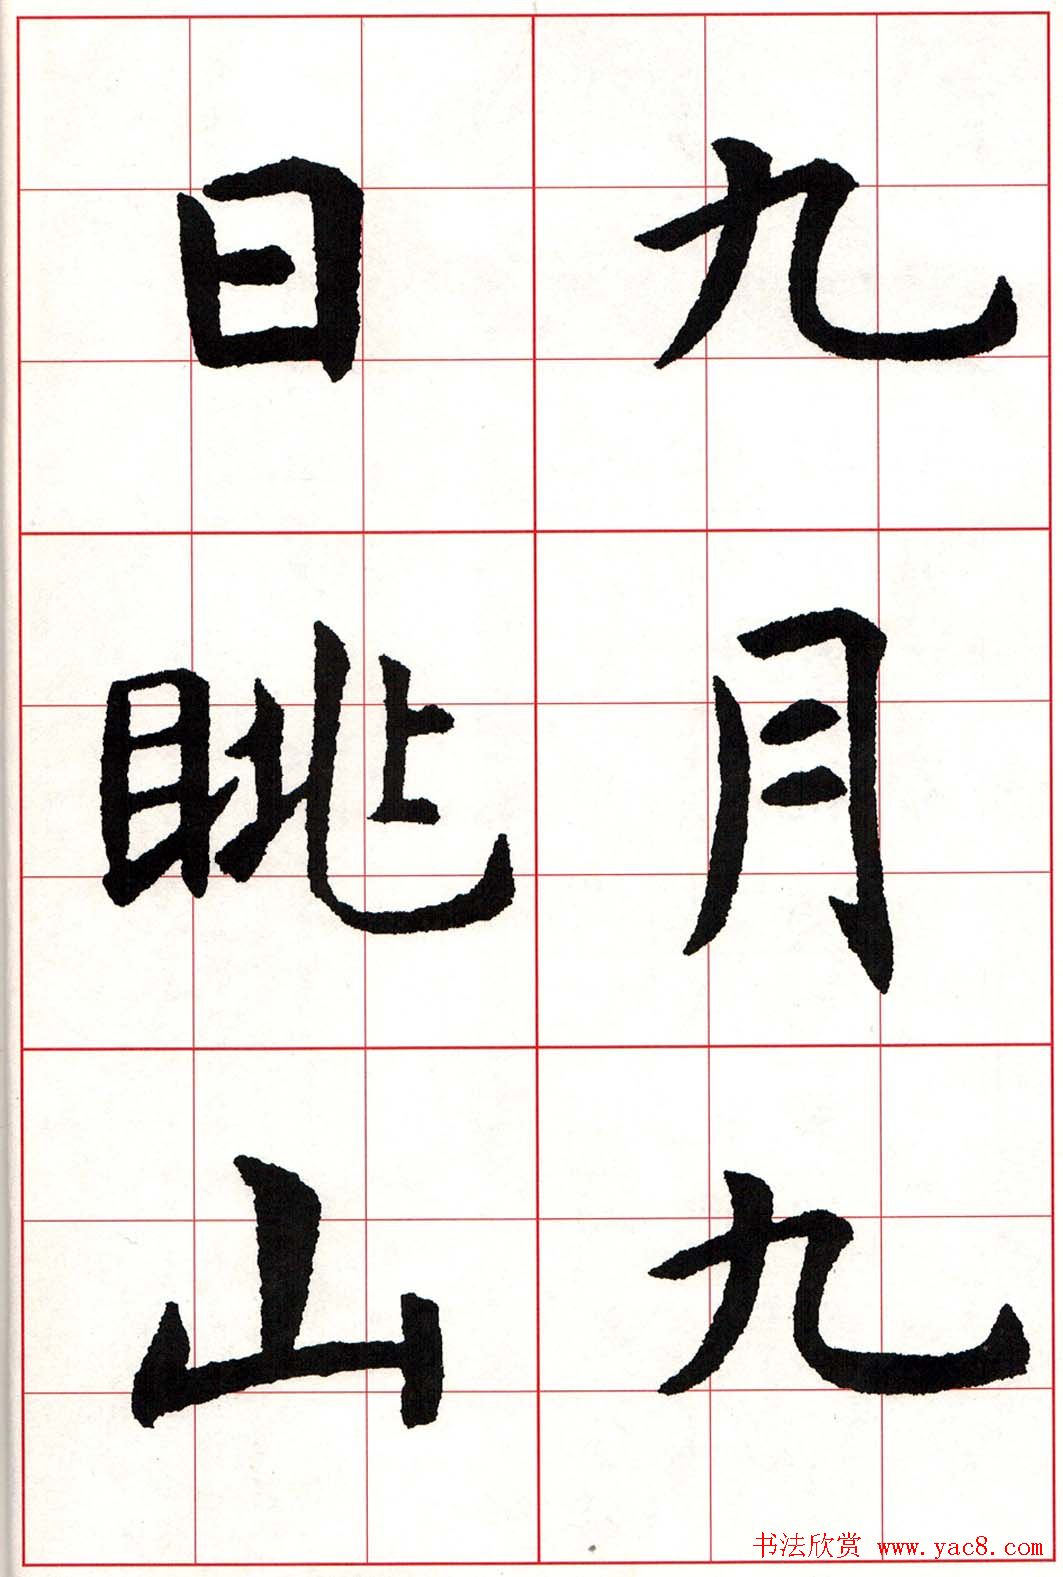 九月九
日眺山
书法欣赏 www.yac8.com